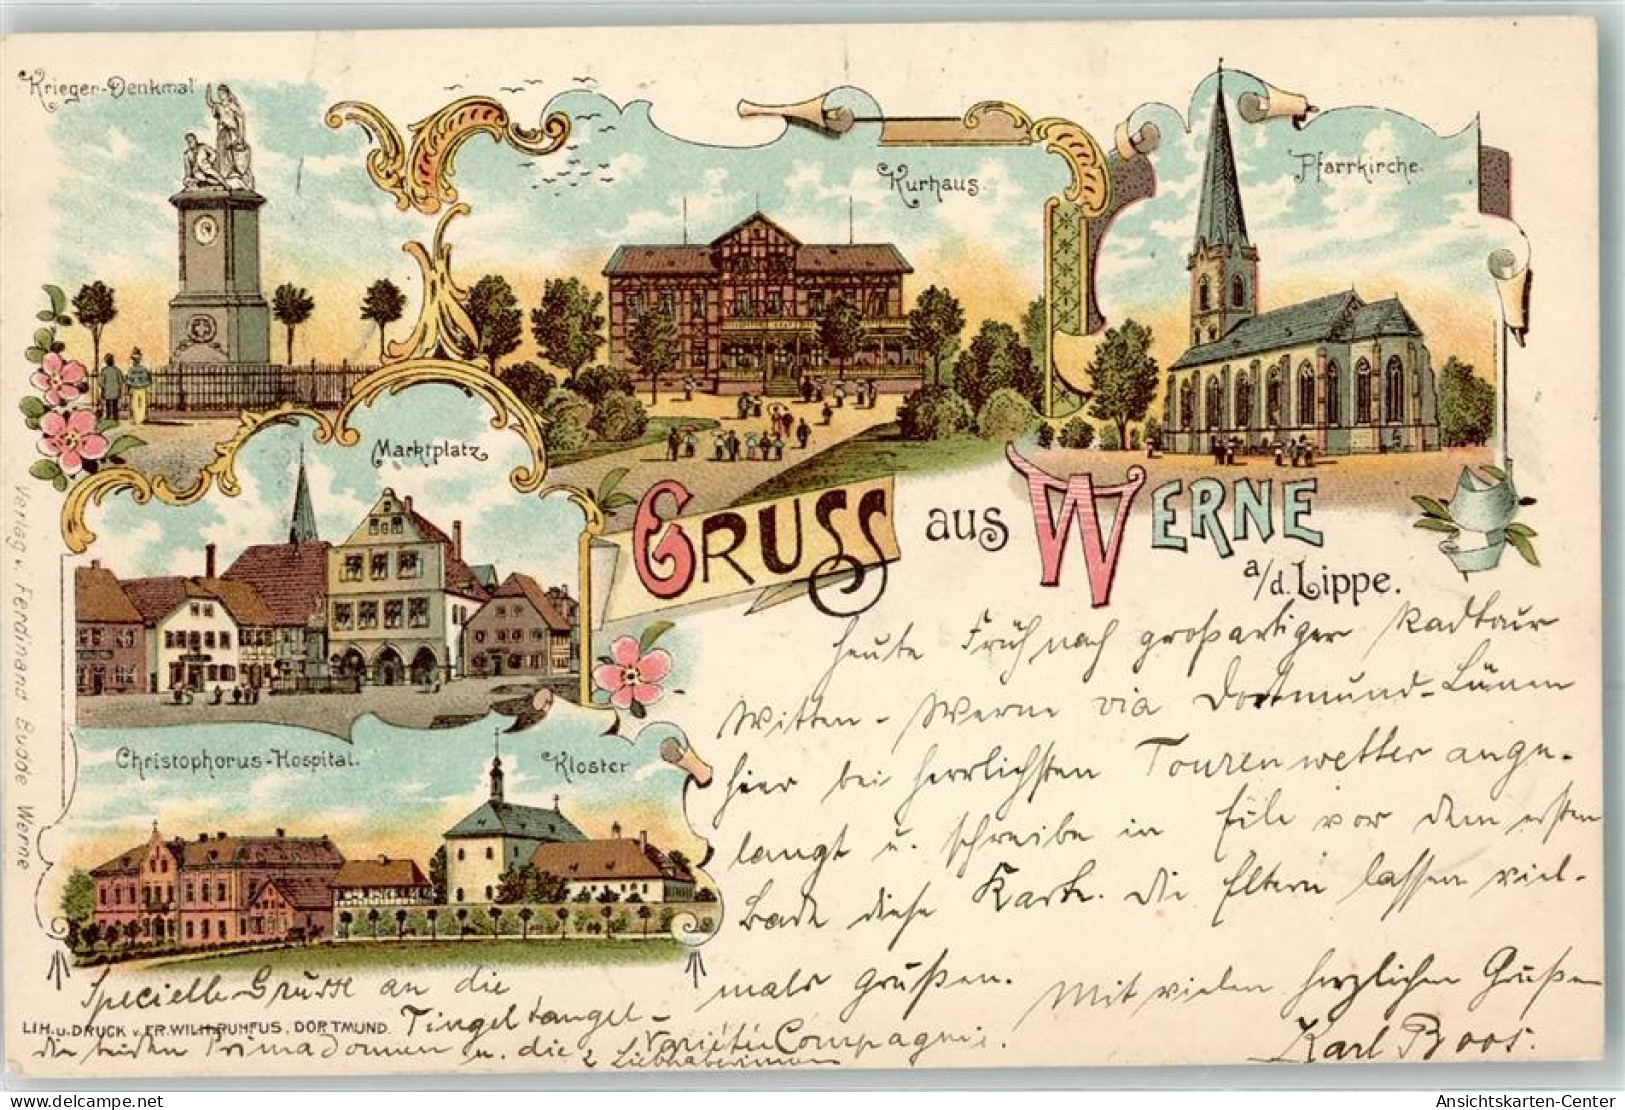 Krieger-Denkmal
Kurhaus.
Pfarrkirche.
Marktplatz
GRUSS aus WERNE
a/d. Lippe.
Christophorus-Hospital.
Kloster
Verlag v. Ferdinand Budde Werne
LITH. u. DRUCK v. FR. WILH. RUHFUS, DORTMUND.
Heute Früh nach großartiger Radtour
Witten - Werne via Dortmund-Lünen
hier bei herrlichsten Tourenwetter ange-
langt u. schreibe in Eile vor dem ersten
Bade diese Karte. Die Eltern lassen viel-
mals grüßen. Mit vielen herzlichen Grüßen
Karl Boos.
Specielle Grüsse an die
Tingeltangel-
Varieté Compagnie.
die Prima Donnen u. die 2 Liebhaberinnen
Ansichtskarten-Center.com
Ansichtskarten-Center